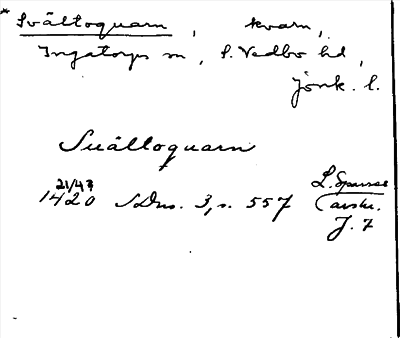 * Svältoquarn, kvarn,
Ingatorps sn, S. Vedbo hd,
Jönk. l.
Suältoquarn
21/4
1420 SDns. 3, s. 557
L. Sparres
avskr.
J. 7